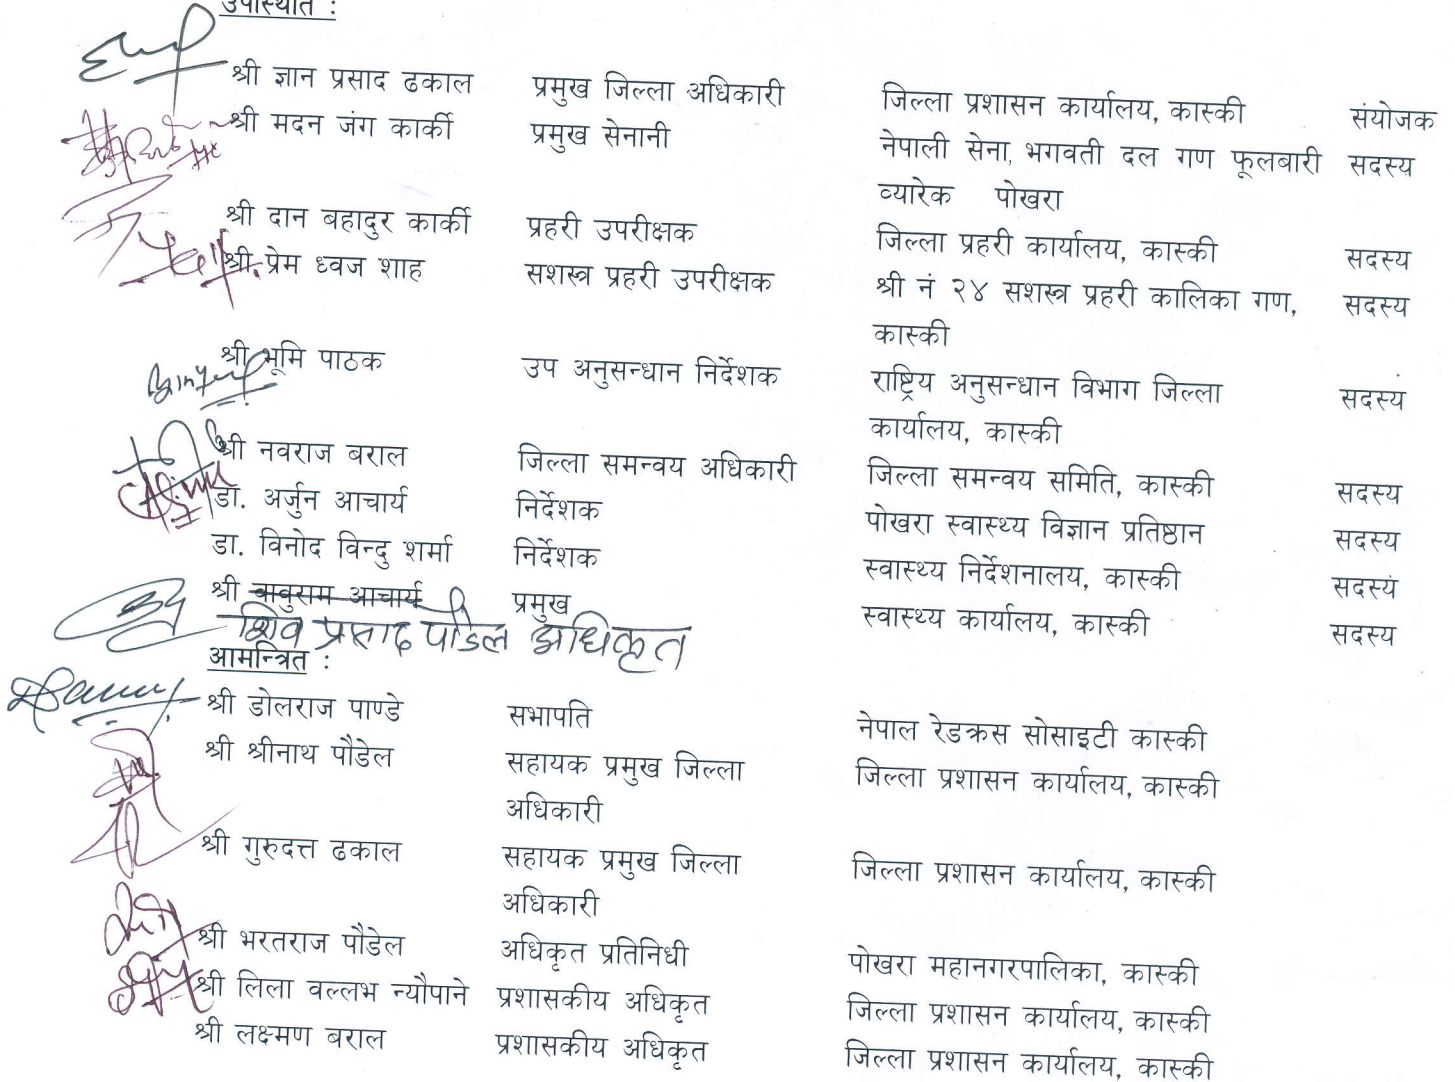 उपस्थिति :
श्री ज्ञान प्रसाद ढकाल प्रमुख जिल्ला अधिकारी जिल्ला प्रशासन कार्यालय, कास्की संयोजक
श्री मदन जंग कार्की प्रमुख सेनानी नेपाली सेना, भगवती दल गण फूलबारी सदस्य
व्यारेक पोखरा
श्री दान बहादुर कार्की प्रहरी उपरीक्षक जिल्ला प्रहरी कार्यालय, कास्की सदस्य
श्री प्रेम ध्वज शाह सशस्त्र प्रहरी उपरीक्षक श्री नं २४ सशस्त्र प्रहरी कालिका गण, सदस्य
कास्की
श्री भूमि पाठक उप अनुसन्धान निर्देशक राष्ट्रिय अनुसन्धान विभाग जिल्ला सदस्य
कार्यालय, कास्की
श्री नवराज बराल जिल्ला समन्वय अधिकारी जिल्ला समन्वय समिति, कास्की सदस्य
डा. अर्जुन आचार्य निर्देशक पोखरा स्वास्थ्य विज्ञान प्रतिष्ठान सदस्य
डा. विनोद विन्दु शर्मा निर्देशक स्वास्थ्य निर्देशनालय, कास्की सदस्य
श्री बाबुराम आचार्य प्रमुख स्वास्थ्य कार्यालय, कास्की सदस्य
शिव प्रसाद पौडेल अधिकृत
आमन्त्रित :
श्री डोलराज पाण्डे सभापति नेपाल रेडक्रस सोसाइटी कास्की
श्री श्रीनाथ पौडेल सहायक प्रमुख जिल्ला जिल्ला प्रशासन कार्यालय, कास्की
अधिकारी
श्री गुरुदत्त ढकाल सहायक प्रमुख जिल्ला जिल्ला प्रशासन कार्यालय, कास्की
अधिकारी
श्री भरतराज पौडेल अधिकृत प्रतिनिधी पोखरा महानगरपालिका, कास्की
श्री लिला वल्लभ न्यौपाने प्रशासकीय अधिकृत जिल्ला प्रशासन कार्यालय, कास्की
श्री लक्ष्मण बराल प्रशासकीय अधिकृत जिल्ला प्रशासन कार्यालय, कास्की